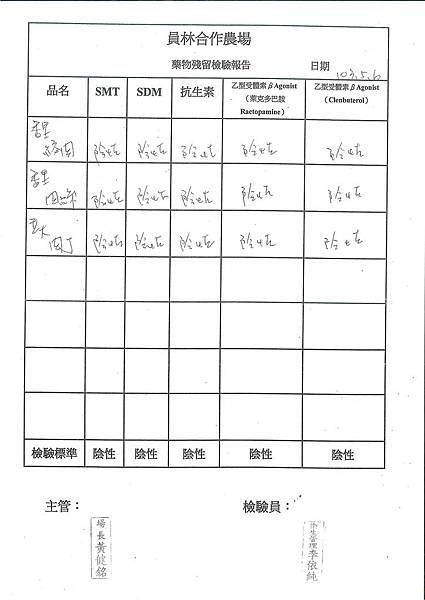 員林合作農場
藥物殘留檢驗報告 日期 103.5.6
品名 SMT SDM 抗生素 乙型受體素βAgonist (萊克多巴胺 Ractopamine) 乙型受體素βAgonist (Clenbuterol)
陰性 陰性 陰性 陰性 陰性
陰性 陰性 陰性 陰性 陰性
肉丁 陰性 陰性 陰性 陰性 陰性
檢驗標準 陰性 陰性 陰性 陰性 陰性
主管： 檢驗員：
場長黃健銘 衛生管理李依純